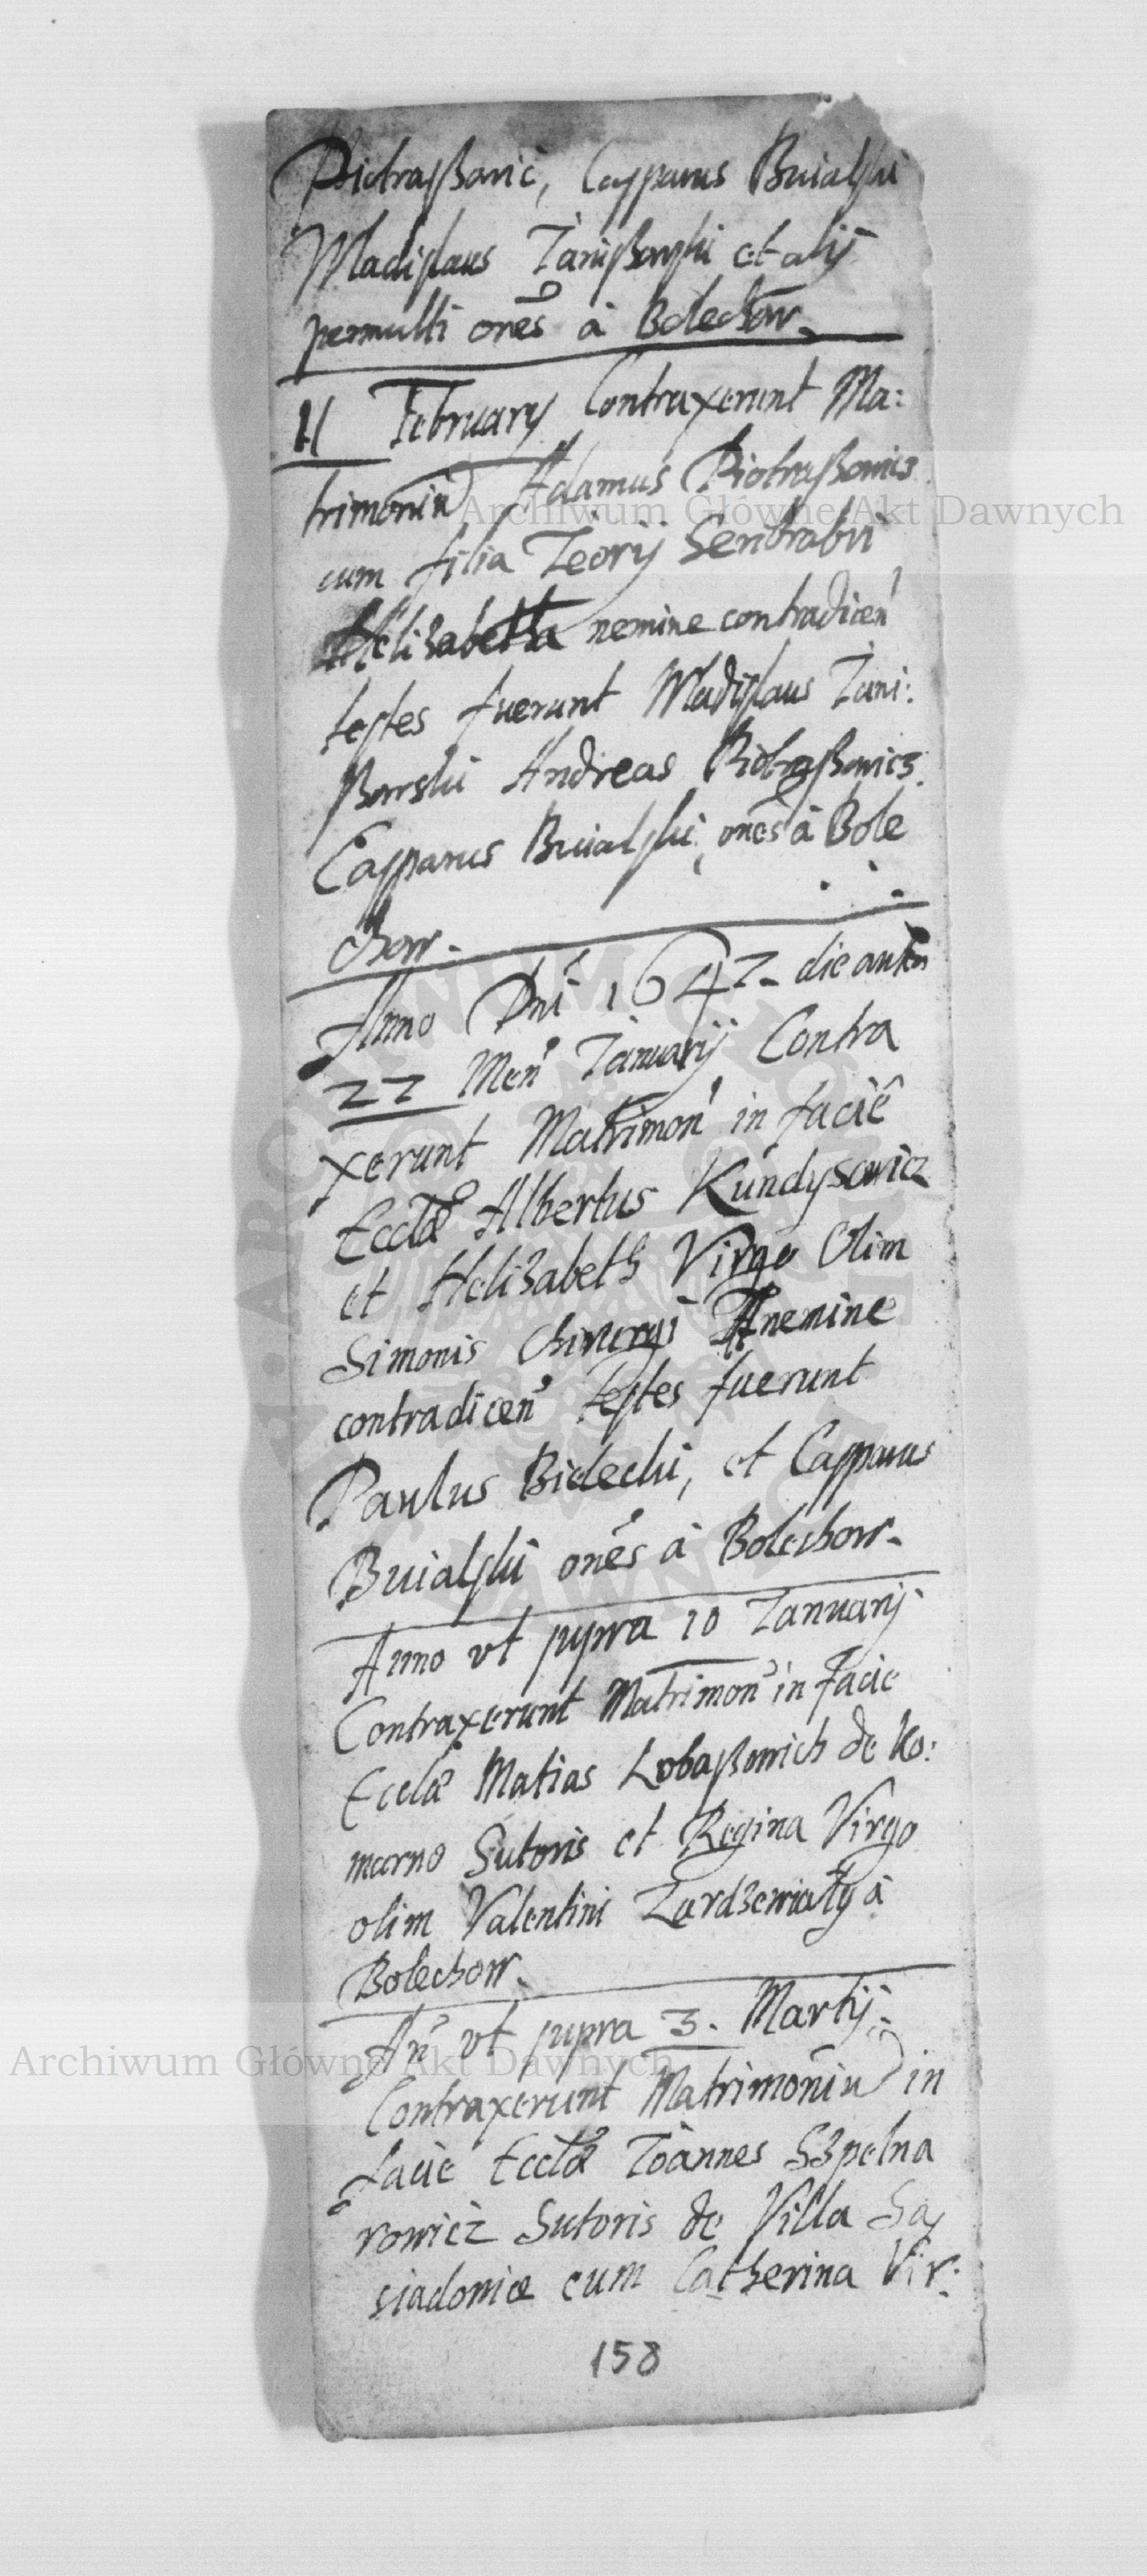 Piotraßovic, Casparus Buialski
Wladislaus Janißewski et alij
permulti oñes à Bolechow
11 February Contraxerunt Ma:
trimoniũ Adamus Piotraßowicz
cum filia
Helizabetha nemine contradiceñ
testes fuerunt Wladislaus Jani:
ßowski Andreas Piotraßowicz
Casparus Buialski, oñes à Bole
chow.
Anno Dñi 1647 die autem
22 Meñ Januarij Contra
xerunt Matrimoñ in faciẽ
Ecclæ Albertus Kundysowicz
et Helizabeth Virgo Olim
Simonis Chirurgi nemine
contradiceñ testes fuerunt
Paulus Bielecki, et Casparus
Buialski oñes à Bolechow.
Anno vt supra 10 Januarij
Contraxerunt Matrimoñ in facie
Ecclæ Matias Lobaßowich de Ko:
marno Sutoris et Regina Virgo
olim Valentini Zardzewiały à
Bolechow.
Añ vt supra 3. Martij
Contraxerunt Matrimoniũ in
facie Ecclæ Joannes Szpelna
rowicz Sutoris de Villa Sa,
siadowice cum Catherina Vir:
158
Archiwum Główne Akt Dawnych
Archiwum Główne Akt Dawnych